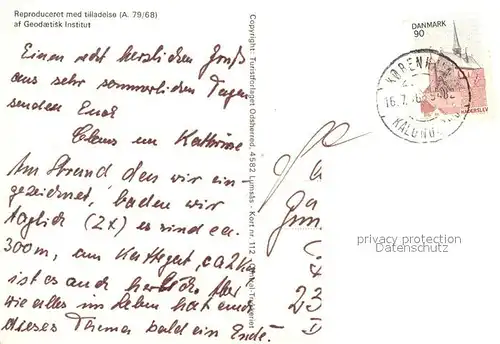 Reproduceret med tilladelse (A. 79/68)
af Geodætisk Institut
Einen recht herzlichen Gruß
aus sehr sommerlichen Tagen
senden Euch
Claus un Kathrine
Am Strand den wir ein-
gezeichnet, baden wir
täglich (2x) es sind ca.
300m, am Kattegat, ca 2km
ist es auch herrlich. Aber
wie alles im Leben hat auch
dieses Thema bald ein Ende.
Copyright: Turistforlaget Odsherred, 4582 Lumsås - Kort nr. 112
DANMARK
90
HADERSLEV
KØBENHAVN
16.7.76
KALUNDBORG
23
privacy protection
Datenschutz